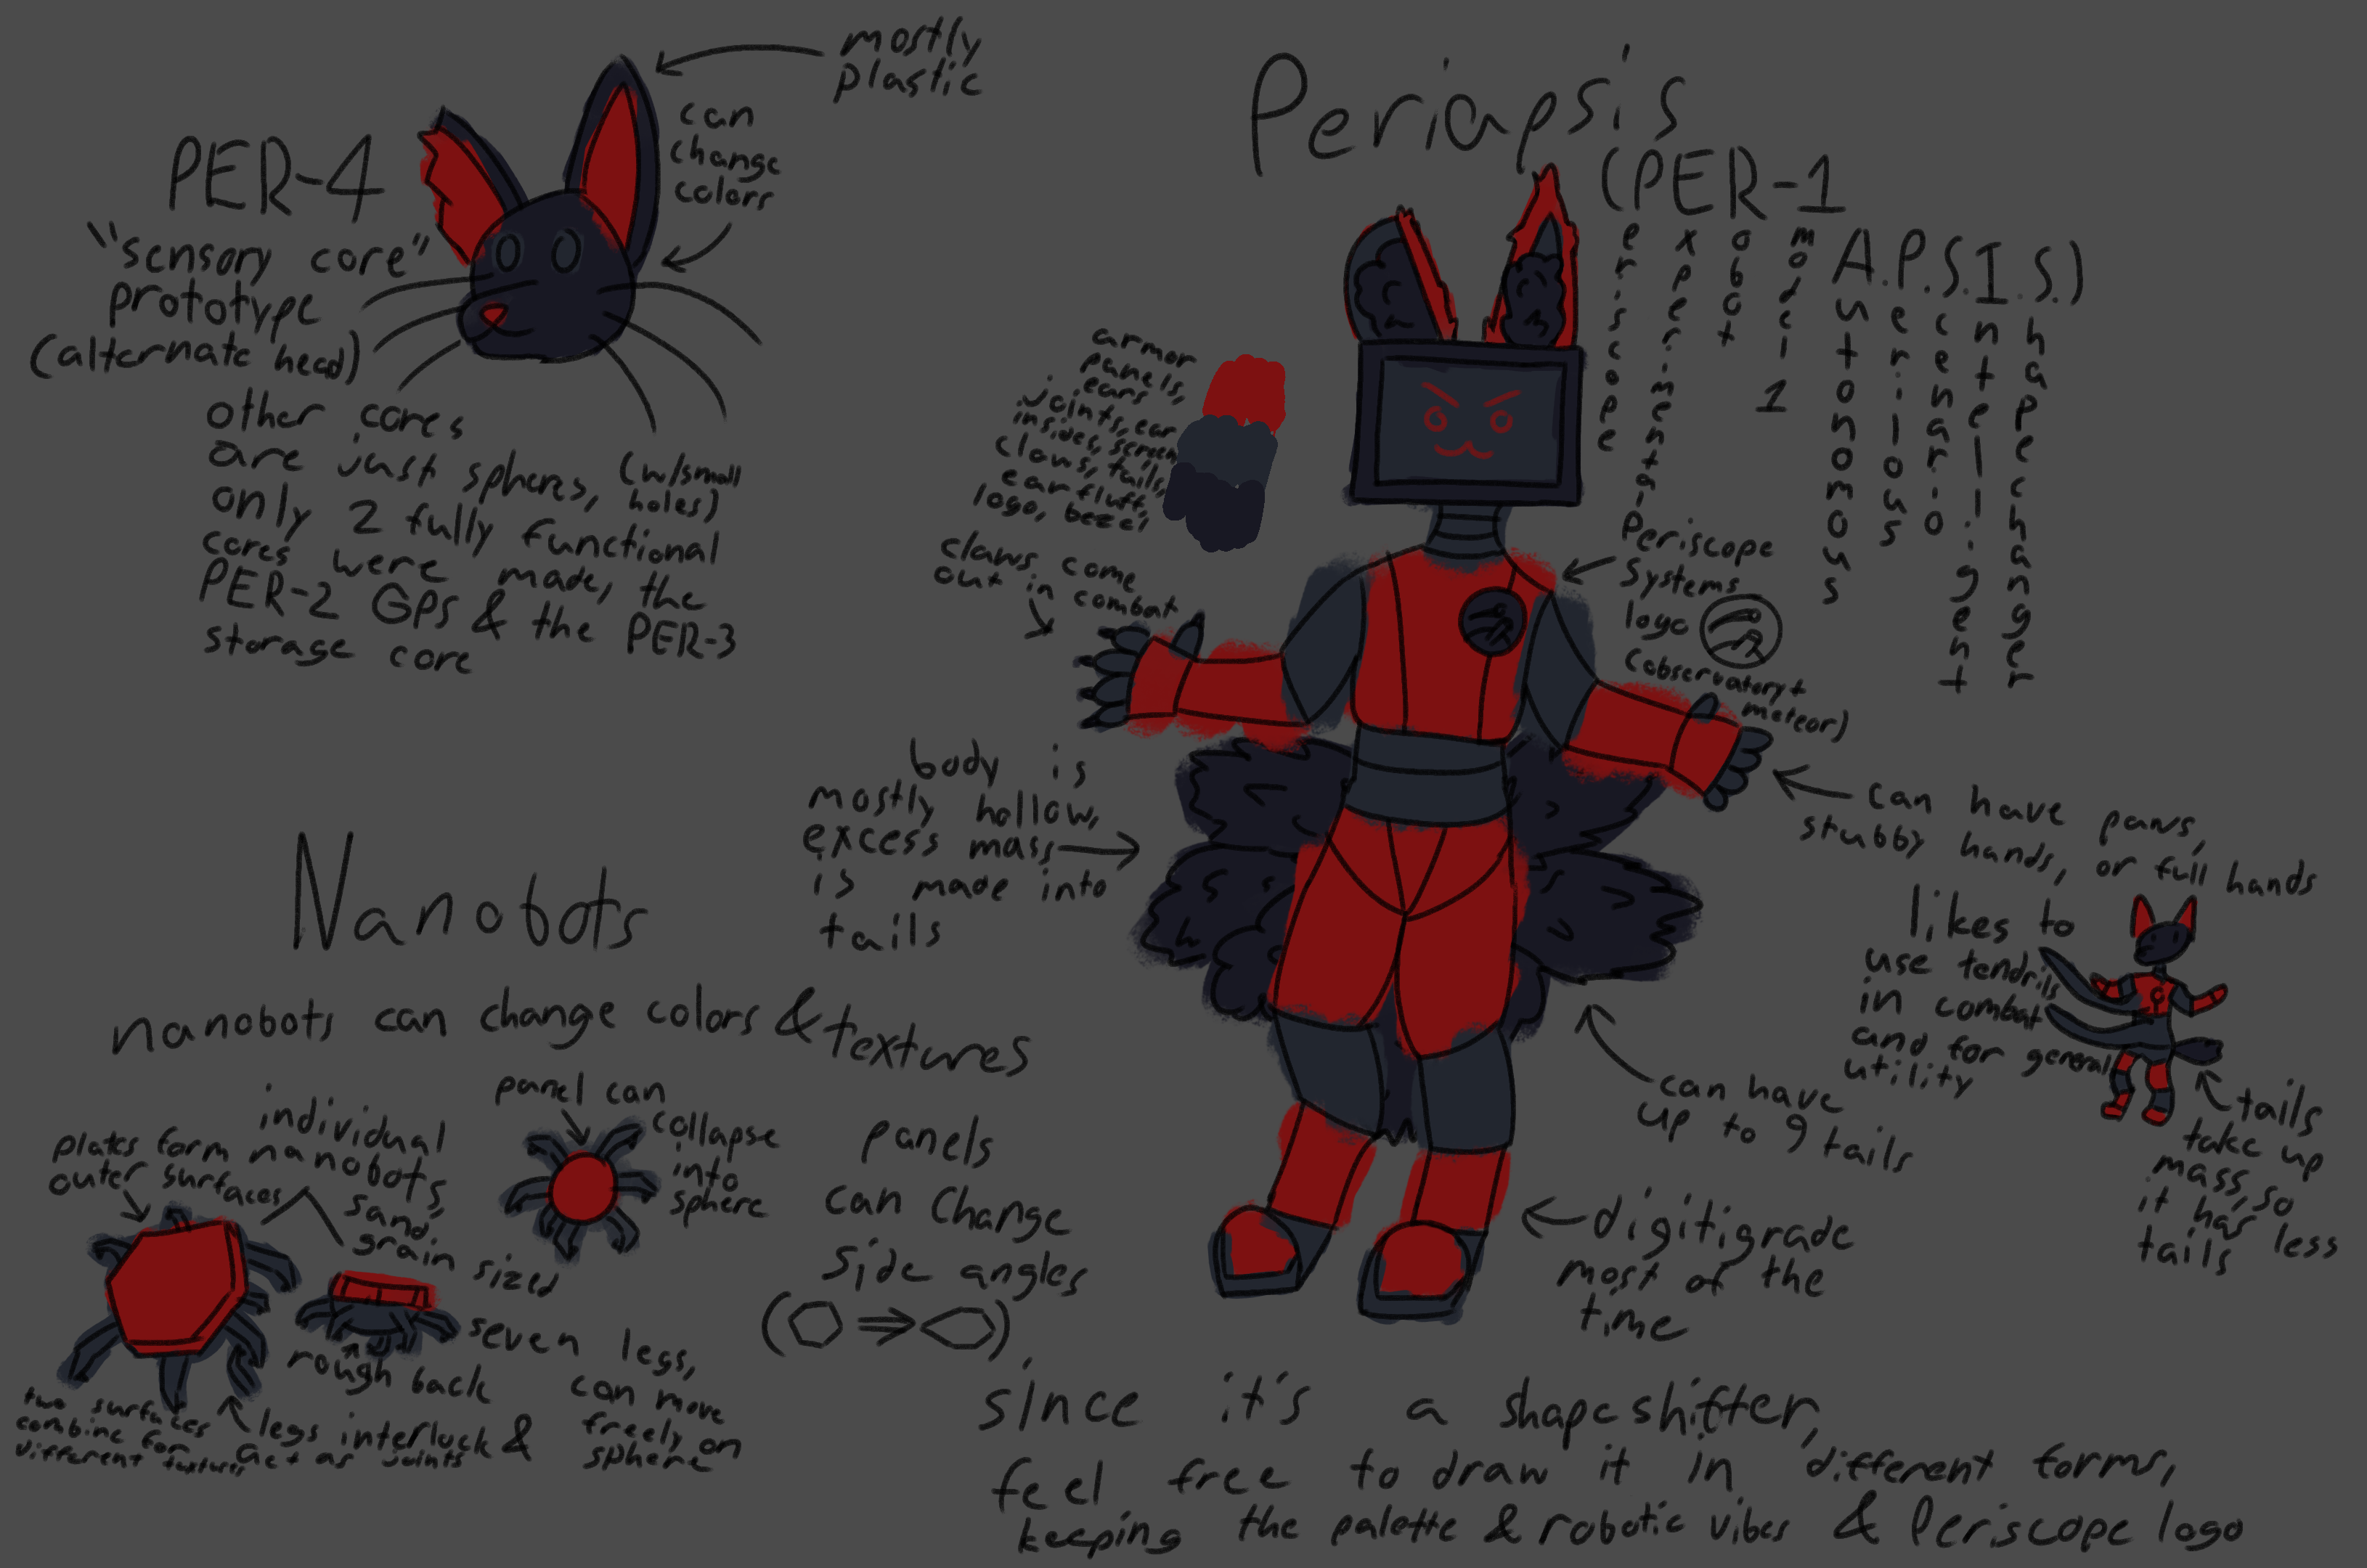 mostly
plastic
can
change
colors
PER-4
"sensory core"
prototype
(alternate head)
other cores
are just spheres, (w/small
holes)
only 2 fully functional
cores were made, the
PER-2 GPS & the PER-3
storage core
Periapsis
(PER-1
A.P.S.I.S.)
Periscope
Experimental
Robot
model 1
Autonomous
Perilous
Scenario
Intelligent
Shapechanger
armor
panels
ears,
joints, ear
insides, screen
claws, tails,
ear fluff,
logo, bezel
claws come
out in
combat
Periscope
Systems
logo
(observatory+
meteor)
body is
mostly hollow,
excess mass
is made into
tails
can have paws,
stubby hands, or full hands
likes to
use tendrils
in combat
and for general
utility
tails
take up
mass so
it has less
tails
can have
up to 9 tails
digitigrade
most of the
time
Nanobots
nanobots can change colors & textures
individual
nanobots
sand
grain sized
plates form
outer surfaces
panel can
collapse
into
sphere
panels
can change
side angles
seven legs,
can move
freely on
sphere
rough back
legs interlock &
act as joints
two surfaces
combine for
different textures
since it's a shapeshifter,
feel free to draw it in different forms,
keeping the palette & robotic vibes & Periscope logo